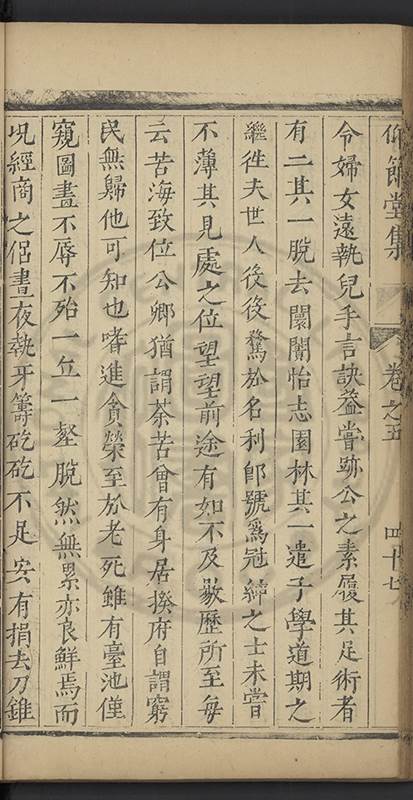 仰節堂集
卷之五
四十七
令婦女遠執兒手言訣葢嘗跡公之素履其足術者
有二其一脫去闤闠怡志園林其一遣子學道期之
繼徃夫世人役役鶩於名利卽號爲冠紳之士未嘗
不薄其見處之位望望前途有如不及敭歷所至每
云苦海致位公卿猶謂荼苦曾有身居揆府自謂窮
民無歸他可知也嗜進貪榮至於老死雖有臺池僅
窺圖畫不辱不殆一丘一壑脫然無累亦良鮮焉而
况經商之侣晝夜執牙籌矻矻不足安有捐去刀錐